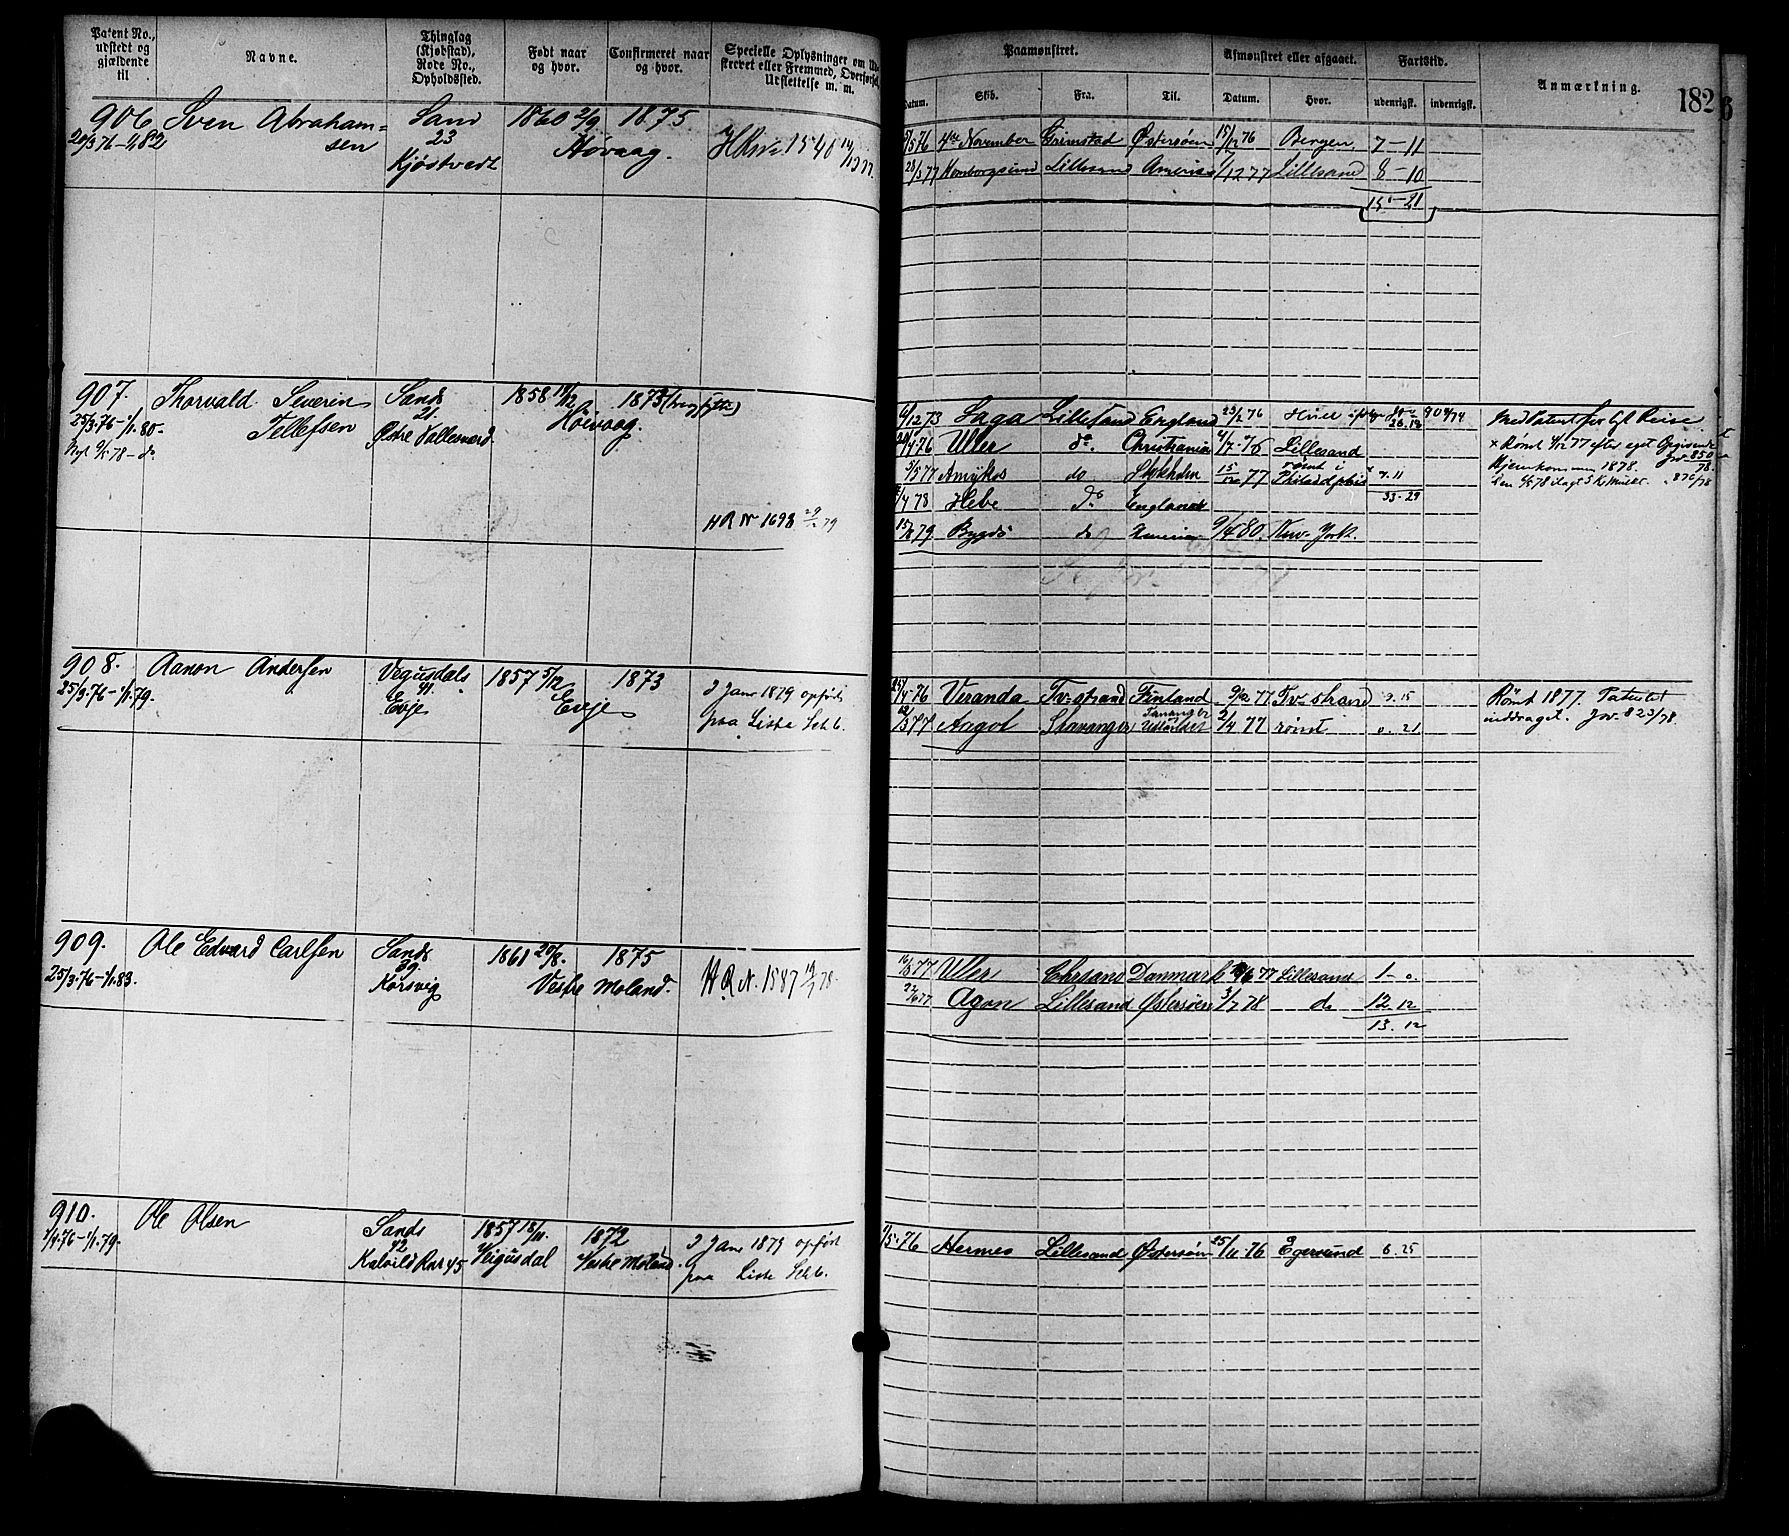 Patent No., udstedt og gjældende til
Navne.
Thinglag (Kjøbstad), Rode No., Opholdssted.
Født naar og hvor.
Confirmeret naar og hvor.
Specielle Oplysninger om
skrevet eller Fremmed, Overførsel,
Udslettelse m. m.
Paamønstret.
Afmønstret eller afgaaet.
Fartstid.
Anmærkning.
182
Datum. Skib. Fra. Til. Datum. Hvor. udenrigsk. indenrigsk.
906 Sven Abraham= Sand 1860 2/9 1875
20/3 76-1/1 82 sen 23 Høvaag.
Kjøstvedt
5/5 76 4de November Grimstad Østersøen 15/12 76 Bergen 7-11
28/3 77 Homborgsund Lillesand Amerika 1/12 77 Lillesand 8-10
15-21
907. Thorvald Severin Sands 1858 19/12 1873
25/3.76-1/1.80- Tellefsen 21. Høivaag.
Østre Vallesværd
HR No 1698 29/79
6/12 73 Saga Lillesand England 23/2 76 Hull
20/4 76 Uller do. Christiania 4/7.76 Lillesand
5/5 77 Amykos do Stokholm 15/10 77 rømt i Philadelphia 7.11
/4 78 Hebe do England 33-29
15/8 79 Bygdø do 9/4 80. New-York.
Med Patent for Reise
x Rømt 77 efter eget Opgivende
Hjemkommen 1878. Jnr. 850/78.
876/78
908. Aanon Andersen Vegusdals 1857 5/12 1873
25/3.76-1/1.79. 41. Evje
Evje
2 Janr 1879 opført
paa Liste
25/4 76 Veranda Tv-strand Finland 9/12 77 Tv-strand 9.15
12/3 77 Argot Stavanger Udlandet 2/4 77 rømt 0.21
Rømt 1877. Patentet
inddraget. Jnr. 823/78.
909. Ole Edvard Carlsen Sands 1861 20/8. 1875
25/3.76-1/1.83. 39. Vestre Moland.
Korsvig
HR N. 1587 78.
16/3 77 Uller Chrsand Danmark 6 77 Lillesand 1-0.
22/6 77 Agon Lillesand Østersøen 3/7 78 do 12.12
13.12
910. Ole Olsen Sands 1857 18/11. 1872
1/4.76-1/1.79. 42 Veigusdal Vestre Moland.
2 Janr 1879 opført
paa Liste
1/5.76 Hermes Lillesand Østersøen 25/11.76 Egersund 6.25